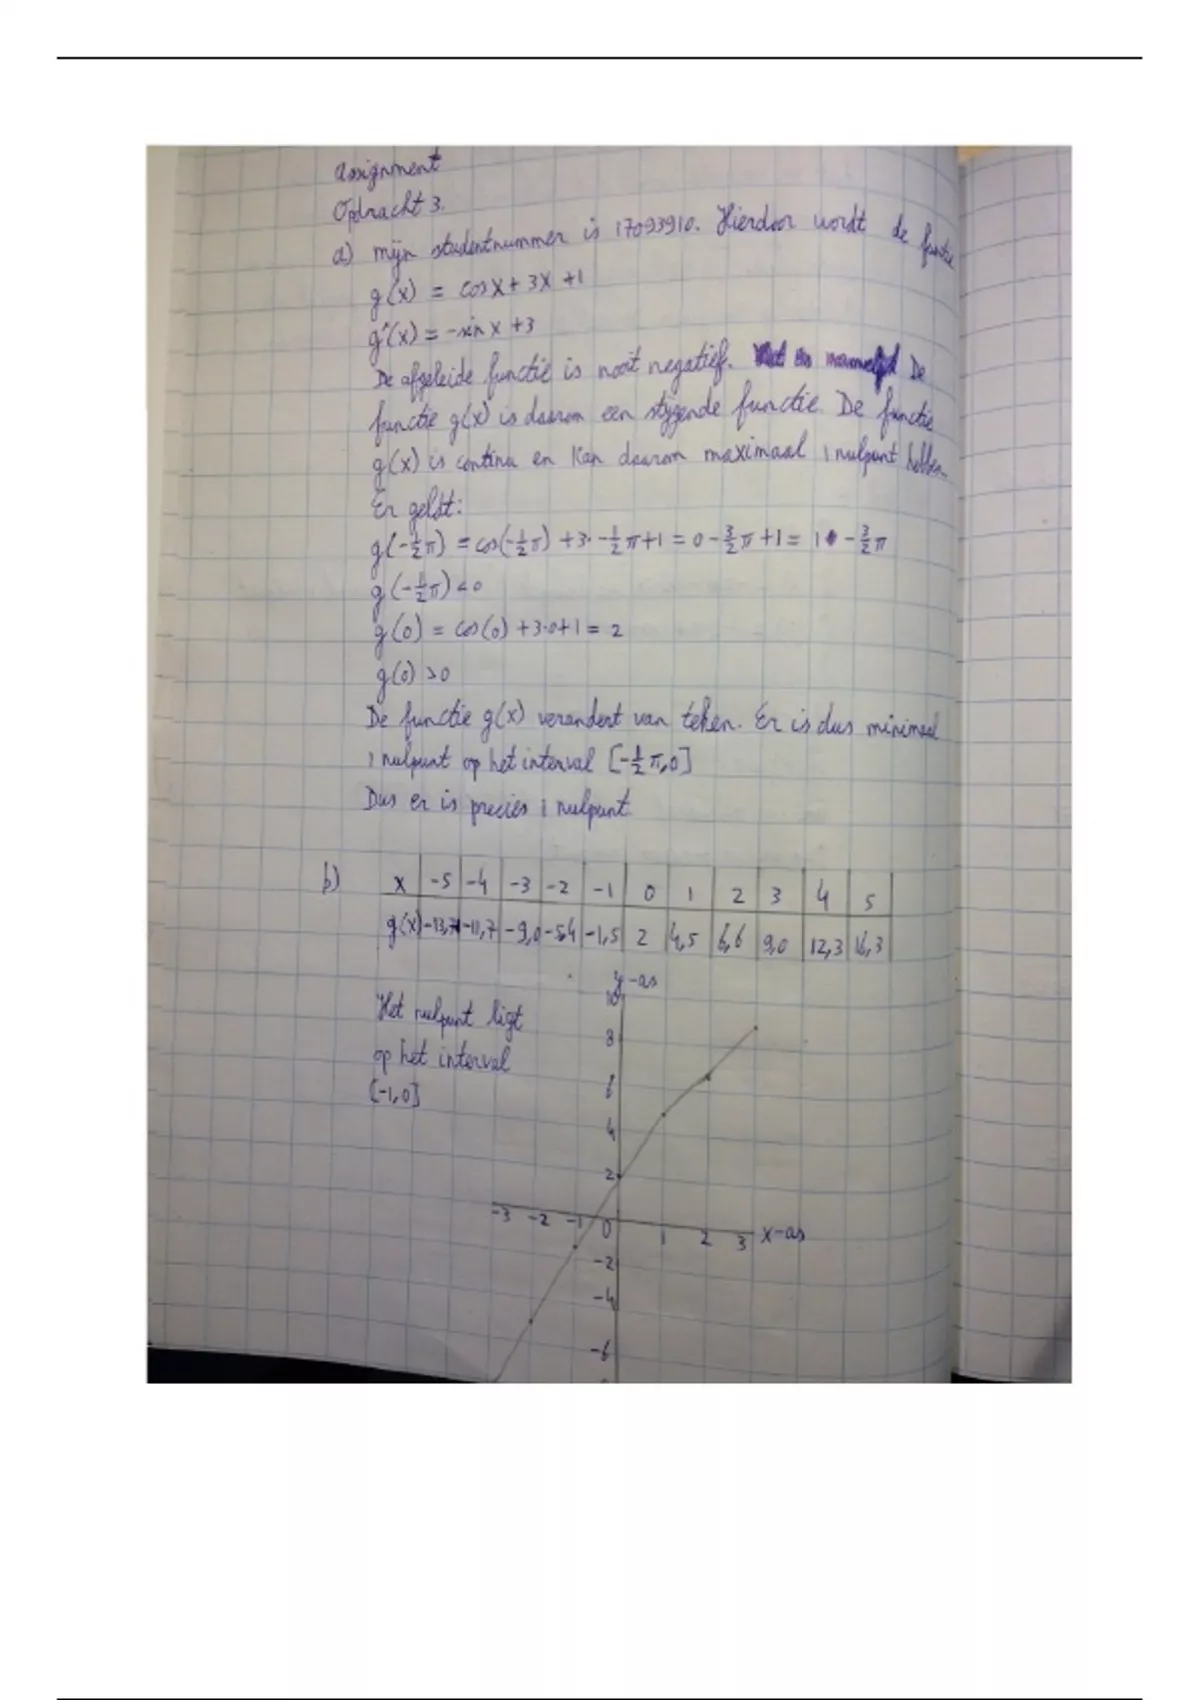 assignment
Opdracht 3.
a) mijn studentnummer is 17093910. Hierdoor wordt de functie
g(x) = cos x + 3x + 1
g'(x) = -sin x + 3
De afgeleide functie is nooit negatief. De
functie g(x) is daarom een stijgende functie. De functie
g(x) is continu en kan daarom maximaal 1 nulpunt hebben.
Er geldt:
g(-½π) = cos(-½π) + 3·-½π+1 = 0 - 3/2π + 1 = 1 - 3/2π
g(-½π) < 0
g(0) = cos(0) + 3·0+1 = 2
g(0) > 0
De functie g(x) verandert van teken. Er is dus minimaal
1 nulpunt op het interval [-½π,0]
Dus er is precies 1 nulpunt.
b) x -5 -4 -3 -2 -1 0 1 2 3 4 5
g(x) -13,7 -11,7 -9,0 -5,4 -1,5 2 4,5 6,6 9,0 12,3 16,3
y-as
Het nulpunt ligt
op het interval
[-1,0]
10
8
6
4
2
-3 -2 -1 0 1 2 3 x-as
-2
-4
-6